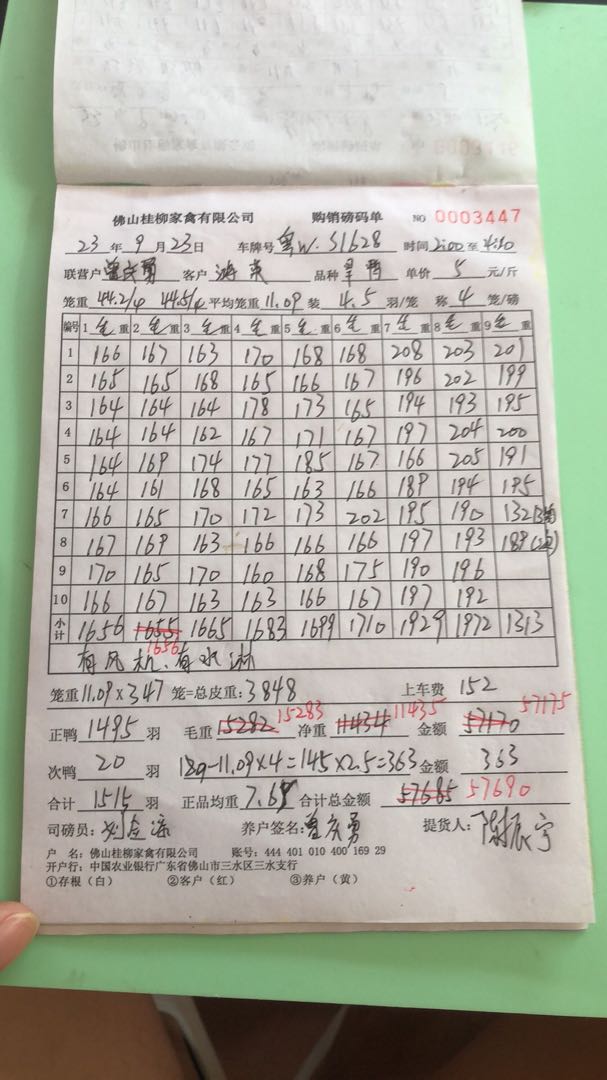 佛山桂柳家禽有限公司 购销磅码单 NO 0003447
23年9月23日 车牌号 粤W·S1628 时间 2:00至4:10
联营户 曾庆勇 客户 品种 单价 5 元/斤
笼重 44.2/4 44.5/4 平均笼重 11.09 装 4.5 羽/笼 称 4 笼/磅
编号 1 毛重 2 毛重 3 毛重 4 毛重 5 毛重 6 毛重 7 毛重 8 毛重 9 毛重
1 166 167 163 170 168 168 208 203 201
2 165 165 168 165 166 167 196 202 199
3 164 164 164 178 173 165 194 193 195
4 164 164 162 167 171 167 197 204 200
5 164 169 174 177 185 167 166 205 191
6 164 161 168 165 163 166 189 194 195
7 166 165 170 172 173 202 195 190 132
8 167 169 163 166 166 166 197 193 189
9 170 165 170 160 168 175 190 196
10 166 167 163 163 166 167 197 192
小计 1656 1655 1665 1683 1699 1710 1929 1972 1313
1656
有风机、有水淋
笼重 11.09×347 笼=总皮重: 3848 上车费 152
正鸭 1495 羽 毛重 15282 15283 净重 11434 11435 金额 57170 57175
次鸭 20 羽 189-11.09×4=145×2.5=363 金额 363
合计 1515 羽 正品均重 7.65 合计总金额 57685 57690
司磅员: 养户签名: 曾庆勇 提货人:
户 名: 佛山桂柳家禽有限公司 账号: 444 401 010 400 169 29
开户行: 中国农业银行广东省佛山市三水区三水支行
①存根（白） ②客户（红） ③养户（黄）